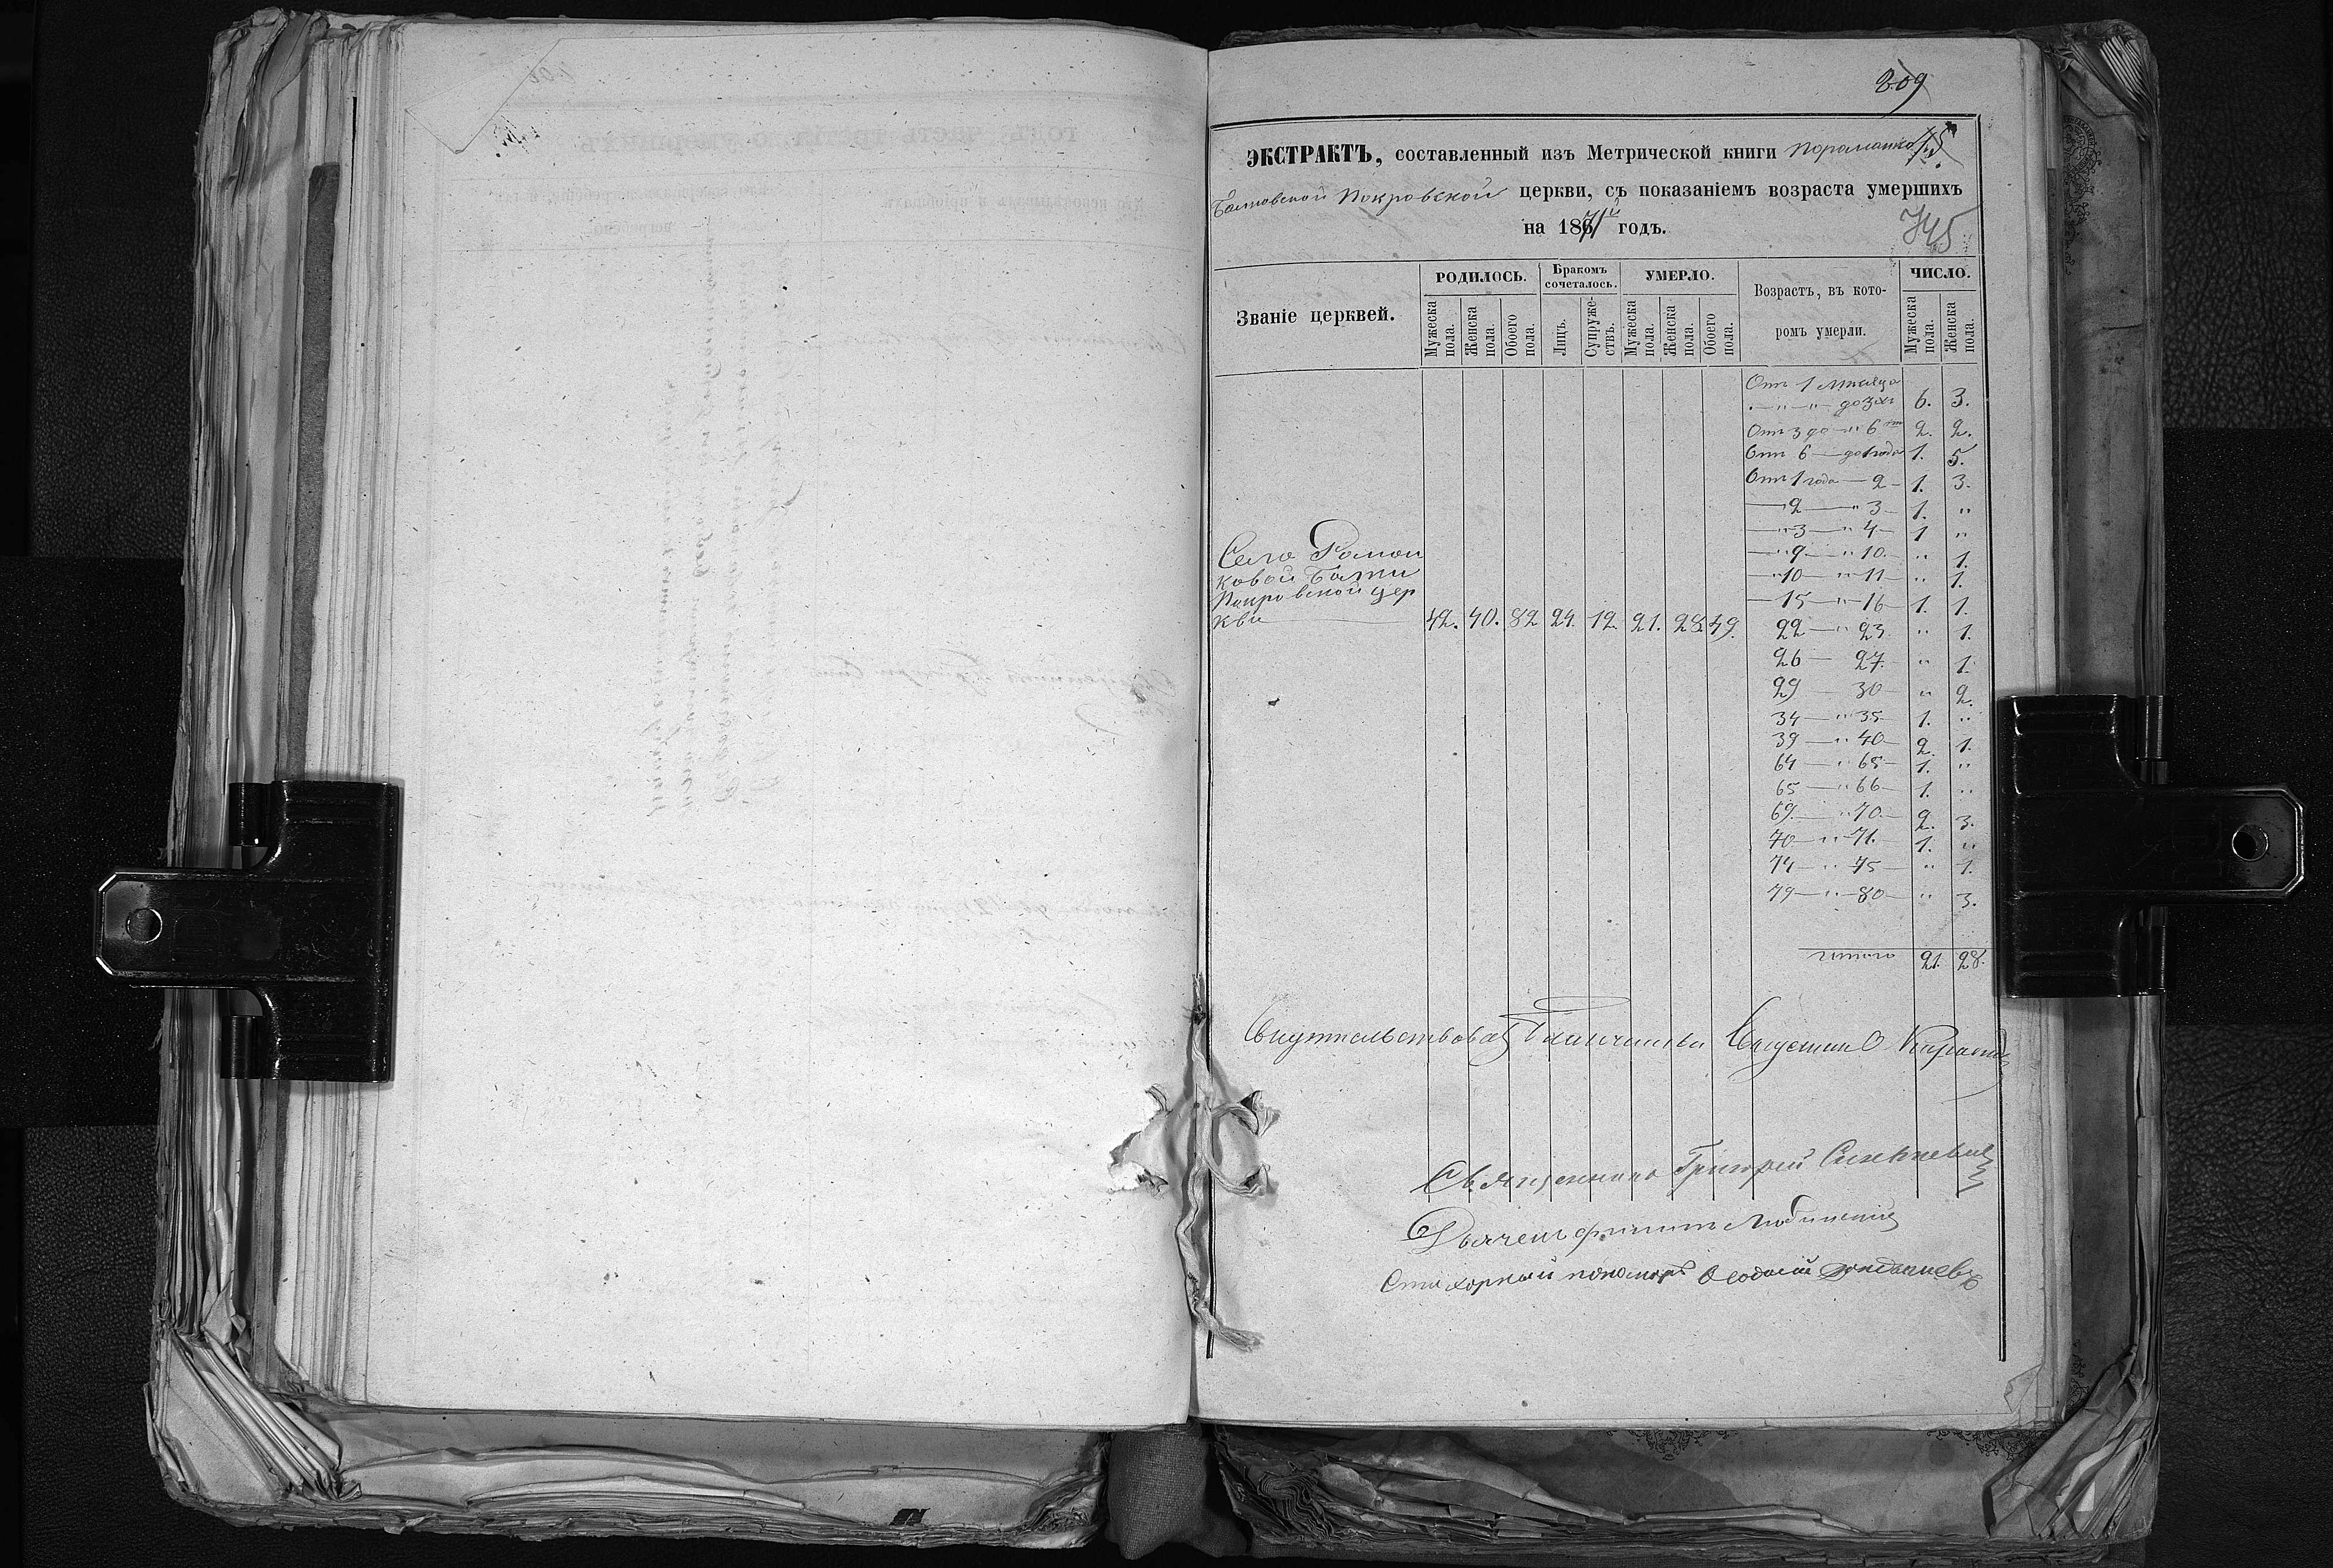 809
ЭКСТРАКТЪ, составленный изъ Метрической книги
Балтовской Покровской церкви, съ показаніемъ возраста умершихъ
на 1871 годъ.
745
Званіе церквей.
РОДИЛОСЬ.
Мужеска пола.
Женска пола.
Обоего пола.
Бракомъ сочеталось.
Лицъ.
Супружествъ.
УМЕРЛО.
Мужеска пола.
Женска пола.
Обоего пола.
Возрастъ, въ кото-
ромъ умерли.
ЧИСЛО.
Мужеска пола.
Женска пола.
Отъ 1 мѣсяца
" " до 3хъ 6. 3.
Отъ 3 до " 6ти 2. 2.
Отъ 6 — до 1 года 1. 5.
Отъ 1 года — 2 — 1. 3.
— 2 — " 3 — 1. "
— " 3 — " 4 — 1 "
— " 9 — " 10 — " 1.
— " 10 — " 11 — " 1.
— 15 — " 16 — 1. 1.
Село Роман
ковой Балки
Покровской цер
кви 42. 40. 82 24. 12. 21. 28 49.
22 — " 23. " 1.
26 — 27. — " 1.
29 — 30 — " 2.
34 — " 35 — 1. "
39 — " 40 — 2. 1.
64 — " 65 — 1. "
65 — " 66 — 1. "
69. — " 70. — 2. 3.
70 — " 71. — 1. "
74 — " 75 — " 1.
79 — " — 80 — " 3.
итого 21. 28.
Свидетельствовалъ Благочинный Священникъ
Священникъ Григорій
Дьячекъ Филиппъ
Стихорный пономарь Феодосій